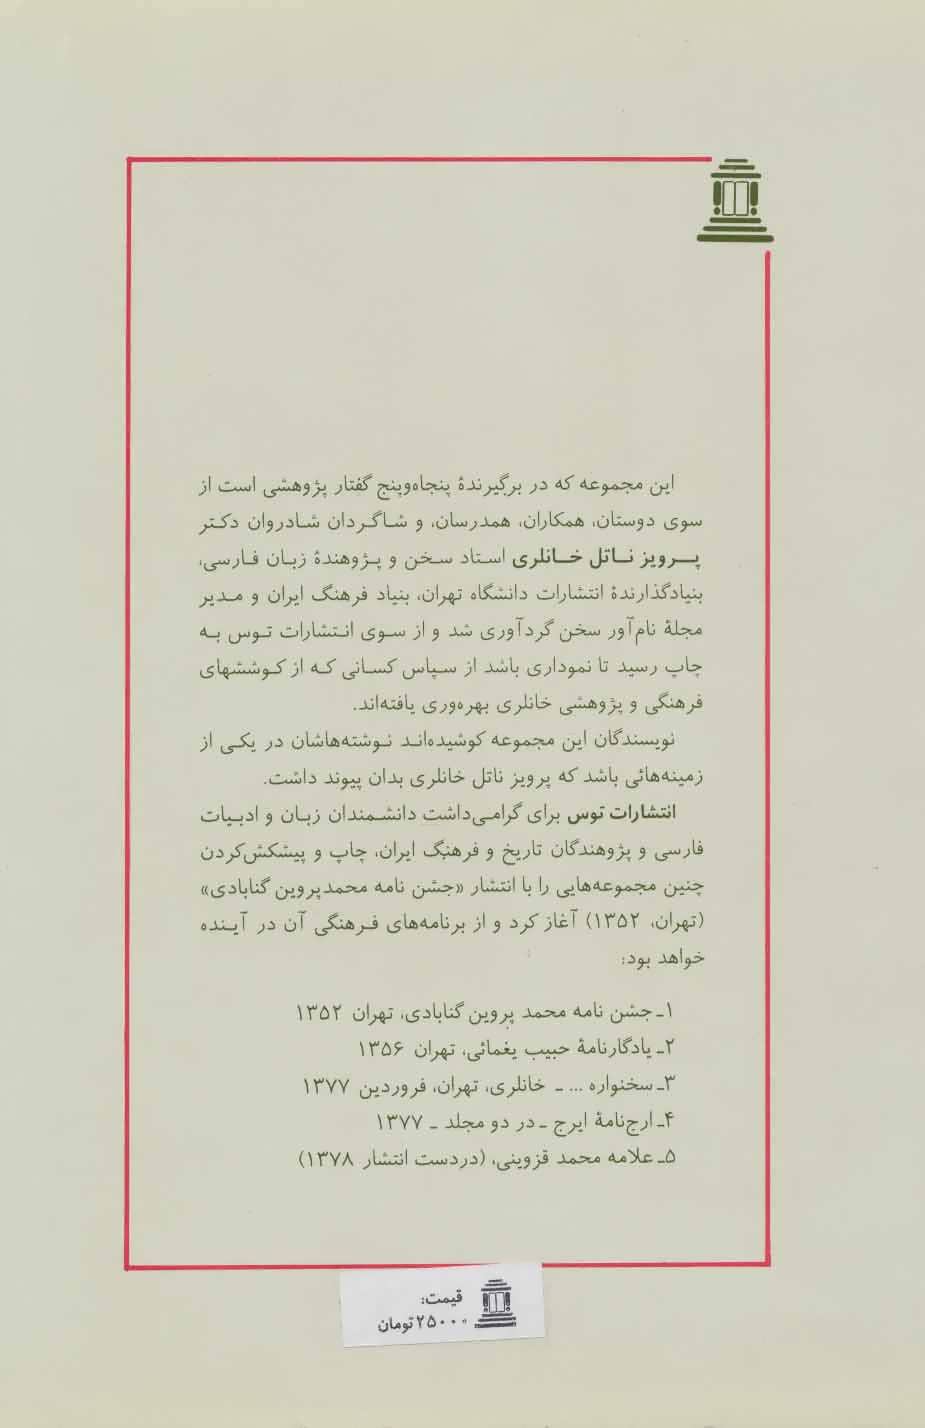 این مجموعه که در برگیرندهٔ پنجاه‌وپنج گفتار پژوهشی است از
سوی دوستان، همکاران، همدرسان، و شاگردان شادروان دکتر
پرویز ناتل خانلری استاد سخن و پژوهندهٔ زبان فارسی،
بنیادگذارندهٔ انتشارات دانشگاه تهران، بنیاد فرهنگ ایران و مدیر
مجلهٔ نام‌آور سخن گردآوری شد و از سوی انتشارات توس به
چاپ رسید تا نموداری باشد از سپاس کسانی که از کوششهای
فرهنگی و پژوهشی خانلری بهره‌وری یافته‌اند.
نویسندگان این مجموعه کوشیده‌اند نوشته‌هاشان در یکی از
زمینه‌هائی باشد که پرویز ناتل خانلری بدان پیوند داشت.
انتشارات توس برای گرامی‌داشت دانشمندان زبان و ادبیات
فارسی و پژوهندگان تاریخ و فرهنگ ایران، چاپ و پیشکش‌کردن
چنین مجموعه‌هایی را با انتشار «جشن نامه محمدپروین گنابادی»
(تهران، ۱۳۵۲) آغاز کرد و از برنامه‌های فرهنگی آن در آینده
خواهد بود:
۱ـ جشن نامه محمد پروین گنابادی، تهران ۱۳۵۲
۲ـ یادگارنامهٔ حبیب یغمائی، تهران ۱۳۵۶
۳ـ سخنواره ... ـ خانلری، تهران، فروردین ۱۳۷۷
۴ـ ارج‌نامهٔ ایرج ـ در دو مجلد ـ ۱۳۷۷
۵ـ علامه محمد قزوینی، (دردست انتشار ۱۳۷۸)
قیمت:
۲۵۰۰۰۰ تومان